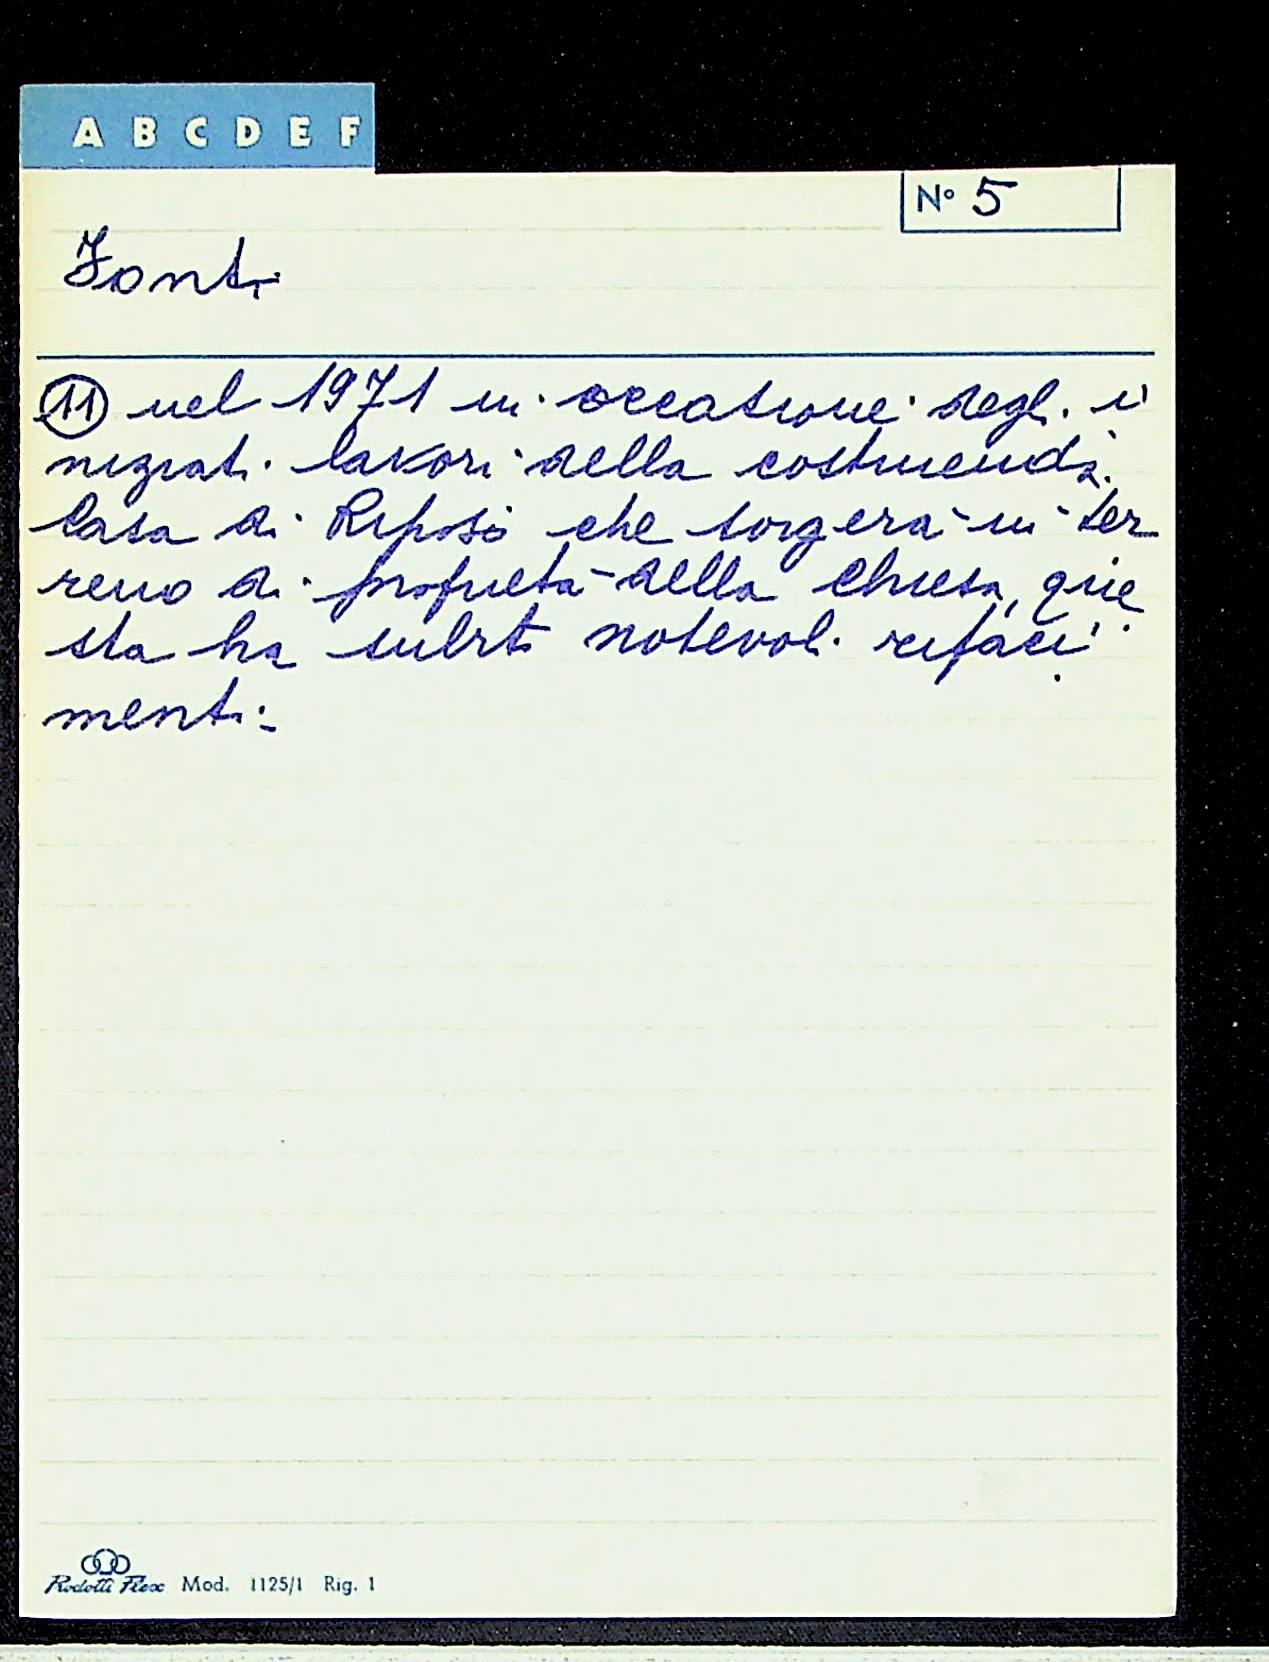 A B C D E F
N° 5
Fonti
11 nel 1971 in occasione degli i
niziati lavori della costruenda
Casa di Riposo che sorgerà in ter
reno di proprietà della Chiesa, que
sta ha subito notevoli rifaci
menti.
Rodotti Flex Mod. 1125/1 Rig. 1